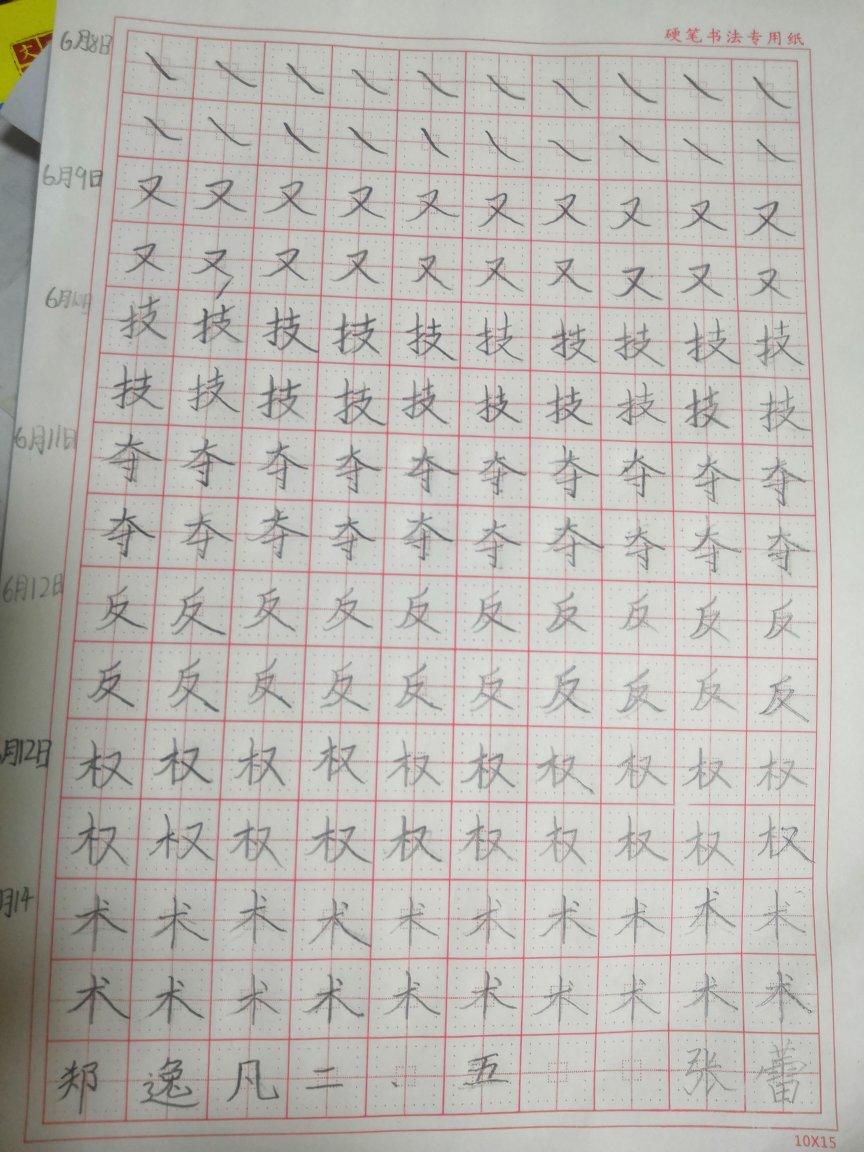 硬笔书法专用纸
6月8日 ㇏ ㇏ ㇏ ㇏ ㇏ ㇏ ㇏ ㇏ ㇏ ㇏
㇏ ㇏ ㇏ ㇏ ㇏ ㇏ ㇏ ㇏ ㇏ ㇏
6月9日 又 又 又 又 又 又 又 又 又 又
又 又 又 又 又 又 又 又 又 又
技 技 技 技 技 技 技 技 技 技
技 技 技 技 技 技 技 技 技 技
6月11日 夺 夺 夺 夺 夺 夺 夺 夺 夺 夺
夺 夺 夺 夺 夺 夺 夺 夺 夺 夺
6月12日 反 反 反 反 反 反 反 反 反 反
反 反 反 反 反 反 反 反 反 反
月12日 权 权 权 权 权 权 权 权 权 权
权 权 权 权 权 权 权 权 权 权
月14 术 术 术 术 术 术 术 术 术 术
术 术 术 术 术 术 术 术 术 术
郑 逸 凡 二 、 五 张 蕾
10X15